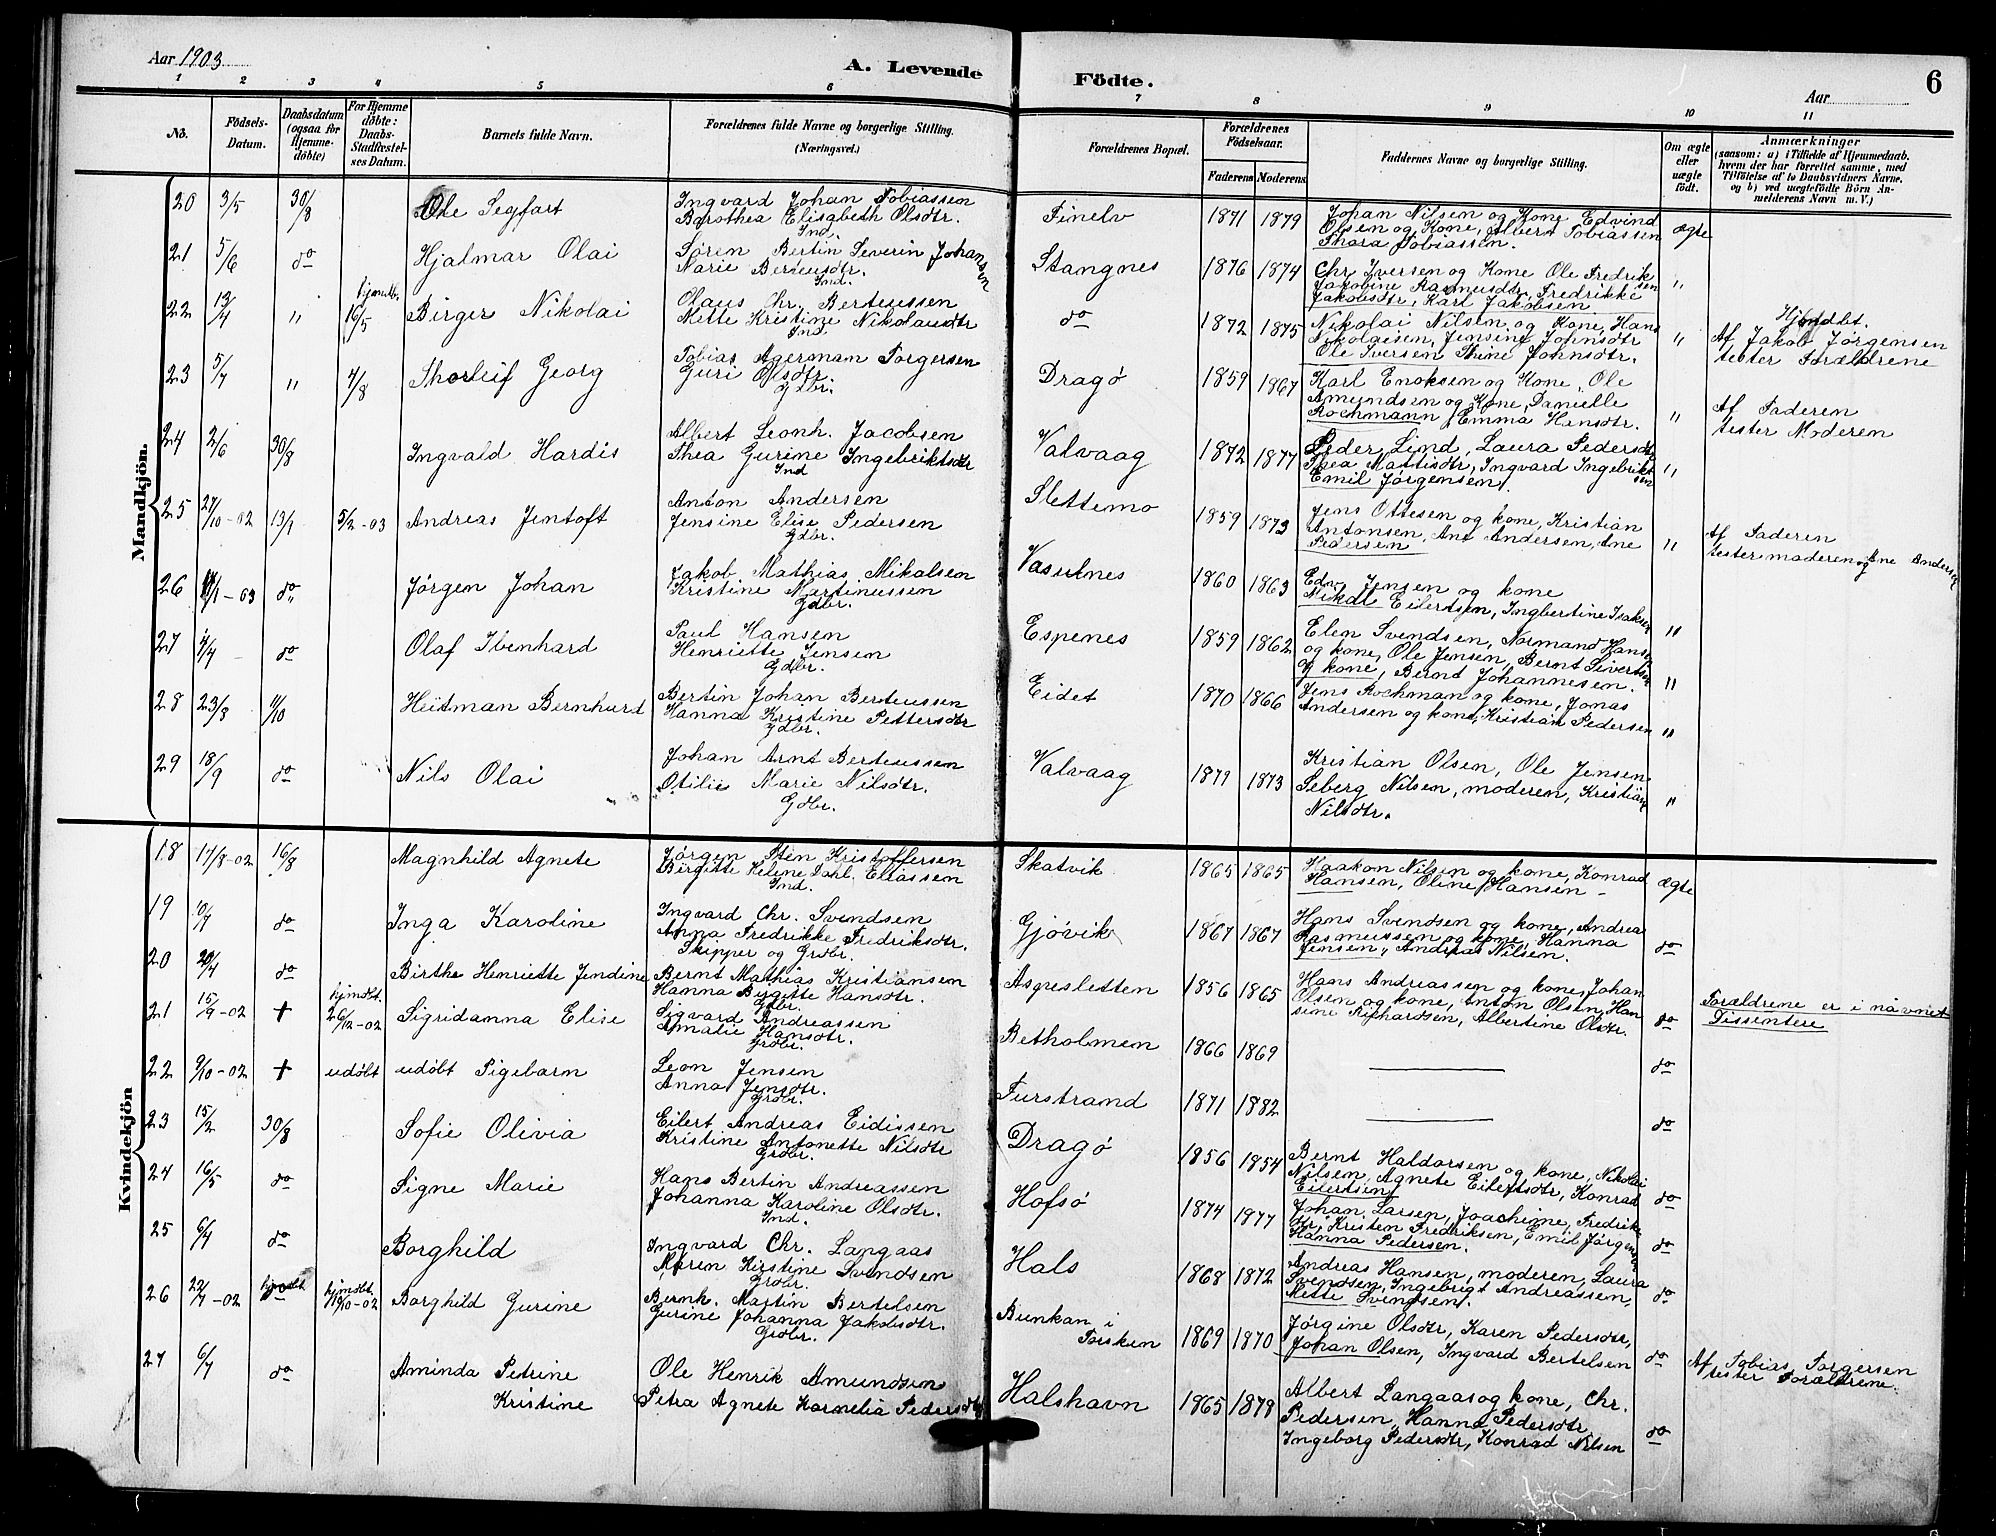 Aar 1903
A. Levende Födte.
6
Aar
1 2 3 4 5 6 7 8 9 10 11
No.
Födsels-Datum.
Daabsdatum (ogsaa for Hjemmedöbte)
For Hjemmedöbte: Daabs-Stadfæstelses Datum.
Barnets fulde Navn.
Forældrenes fulde Navne og borgerlige Stilling. (Næringsvei.)
Forældrenes Bopæl.
Forældrenes Födselsaar.
Faderens Moderens
Faddernes Navne og borgerlige Stilling.
Om ægte eller uægte födt.
Anmærkninger
(saasom: a) i Tilfælde af Hjemmedaab. hvem der har forrettet samme, med Tilföielse af to Daabsvidners Navne. og b) ved uegtefödte Börn Anmelderens Navn m. V.)
Mandkjön.
20 3/5 30/8 Ole Segfart
Ingvard Johan Tobiassen
Dorothea Elisabeth Olsdtr.
Ind.
Finelv 1871 1879
Johan Nilsen og Kone Edvind
Olsen og Kone, Albert Tobiassen
Thora Tobiassen.
ægte
21 5/6 do Hjalmar Olai
Søren Bertin Severin Johansen
Marie Berteusdtr.
Ind.
Stangnes 1876 1874
Chr Iversen og Kone Ole Fredriksen
Jakobine Rasmusdtr, Fredrikke
Jakobsdtr, Karl Jakobsen
"
22 13/4 " hjemdb. 16/5 Birger Nikolai
Olaus Chr. Berteussen
Mette Kristine Nikolausdtr
Ind
do 1872 1875
Nikolai Nilsen og Kone, Hans
Nikolaisen, Jensine Johnsdtr
Ole Iversen Stine Johnsdtr.
"
Hjmdbt.
Af Jakob Jørgensen
tester Forældrene
23 5/7 " 4/8 Thorleif Georg
Tobias Agerman Torgersen
Guri Olsdtr
Gdbr.
Dragø 1859 1867
Karl Enoksen og Kone, Ole
Amundsen og Kone, Danielle
Rochmann, Emma Hansdtr.
"
Af Faderen
tester Moderen
24 2/6 30/8 Ingvald Hardis
Albert Leonh. Jacobsen
Thea Gurine Ingebriktsdtr
Ind
Valvaag 1872 1877
Peder Lind, Laura Pedersdtr
Thea Mattisdtr, Ingvard Ingebriktsen
Emil Jørgensen.
"
25 27/10-02 13/1 5/2-03 Andreas Jentoft
Anton Andersen
Jensine Elise Pedersen
Gdbr.
Slettemo 1859 1873
Jens Ottesen og kone, Kristian
Antonsen, Ant Andersen, Ane
Pedersen
"
Af Faderen
tester moderen og Ane Andersen
26 1/1-03 do" Jørgen Johan
Jakob Mathias Mikalsen
Kristine Martinussen
Gdbr.
Vasutnes 1860 1863
Edv. Jensen og kone
Mikal Eilertsen, Ingbertine Isaksen
"
27 4/4 - do Olaf Ibenhard
Paul Hansen
Henriette Jensen
Gdbr.
Espenes 1859 1862
Elen Svendsen, Normand Hansen
og kone, Ole Jensen, Bernt Sivertsen
og kone, Bernt Johannesen.
"
28 23/8 11/10 Heitman Bernhard
Bertin Johan Berteussen
Hanna Kristine Pettersdtr
Gdbr.
Eidet 1870 1866
Jens Rochman og kone, Jonas
Andersen og kone, Kristian Pedersen
"
29 18/9 do Nils Olai
Johan Arnt Berteussen
Otilie Marie Nilsdtr.
Gdbr.
Valvaag 1879 1873
Kristian Olsen, Ole Jensen
Seberg Nilsen, moderen, Kristian
Nilsdtr.
"
Kvindekjön
18 17/8-02 16/8 Magnhild Agnete
Jørgen Sten Kristoffersen
Birgitte Helene Dahl Eliassen
Ind.
Skatvik 1865 1865
Haakon Nilsen og kone, Konrad
Hansen, Oline Hansen -
ægte
19 10/7 do Inga Karoline
Ingvard Chr. Svendsen
Anna Fredrikke Fredriksdtr.
Skipper og Grdbr.
Gjøvik 1867 1867
Hans Svendsen og kone, Andrea
Rasmussen og kone, Hanna
Jensen, Andreas Nilsen.
do
20 29/4 do Birthe Henriette Jendine
Bernt Mathias Kristiansen
Hanna Birgette Hansdtr.
Grdbr.
Aspesletten 1856 1865
Hans Andreassen og kone, Johan
Olsen og kone, Anton Olsen, Hansine
Richardsen, Albertine Olsdtr.
do
Forældrene er i nåvnet
Dissentere
21 15/9-02 + hjmdbt. 26/12-02 Sigridanna Elise
Sigvard Andreassen
Amalie Hansdtr.
Grdbr.
Betholmen 1866 1869
do
22 9/10-02 + udøbt udøbt Pigebarn
Leon Jensen
Anna Jensdtr.
Grdbr.
Furstrand 1871 1882
do
23 15/2 30/8 Sofie Olivia
Eilert Andreas Eidissen
Kristine Antonette Nilsdtr
Grdbr.
Dragø 1856 1854
Bernt Haldorsen og kone, Nikolai
Nilsen, Agnete Eilertsdtr, Konrad
Eilertsen
do
24 16/5 do Signe Marie
Hans Bertin Andreassen
Johanna Karoline Olsdtr.
Ind.
Hofsø 1874 1877
Johan Larsen, Joachime, Fredrik
Kr, Kristen Fredriksen, Emil Jørgensen
Hanna Pedersen.
do
25 6/4 do Borghild
Ingvard Chr. Langaas
Maren Kirstine Svendsen
Grdbr.
Hals 1868 1872
Andreas Hansen, moderen, Laura
Svendsen, Ingebrigt Andreassen,
Mette Svendsen.
do
26 22/7-02 hjmdbt hjmdbt. 19/10-02 Borghild Gurine
Bernh. Martin Bertelsen
Gurine Johanna Jakobsdtr.
Grdbr.
Bunkan i
Torsken 1869 1870
Jørgine Olsdtr, Karen Pedersdtr,
Johan Olsen, Ingvard Bertelsen
do
Af Tobias Torgersen
tester Forældrene.
27 6/7 do Aminda Petrine
Kristine
Ole Henrik Amundsen
Petra Agnete Kornelia Pedersdtr
Halshavn 1865 1879
Albert Langaas og kone, Chr.
Pedersen, Hanna Pedersdtr
Ingeborg Pedersdtr, Konrad Nilsen
do